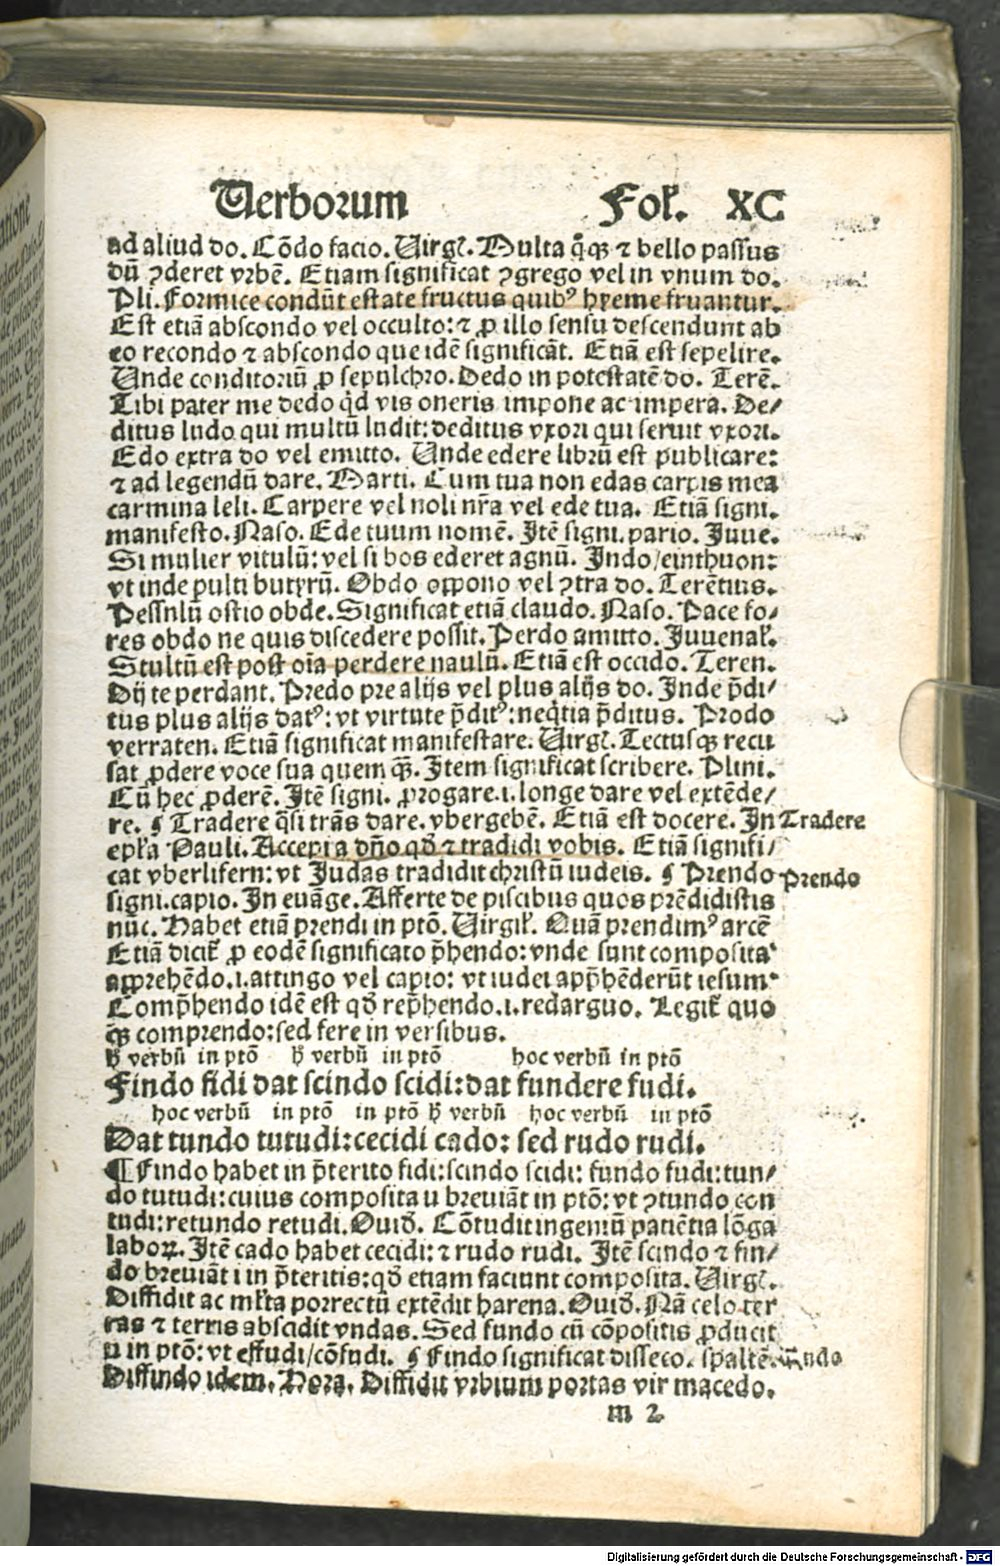 Verborum Fol. XC
ad aliud do. Cōdo facio. Virgl. Multa q̊q̃ ⁊ bello passus
dū ꝯderet vrbē. Etiam significat ꝯgrego vel in vnum do.
Pli. Formice condūt estate fructus quibꝰ hyeme fruantur.
Est etiā abscondo vel occulto: ⁊ ꝓ illo sensu descendunt ab
eo recondo ⁊ abscondo que idē significāt. Etiā est sepelire.
Unde conditoriū ꝓ sepulchro. Dedo in potestatē do. Terē.
Tibi pater me dedo qd̓ vis oneris impone ac impera. De/
ditus ludo qui multū ludit: deditus vxori qui seruit vxori.
Edo extra do vel emitto. Unde edere librū est publicare:
⁊ ad legendū dare. Marti. Cum tua non edas carpis mea
carmina leli. Carpere vel noli nr̄a vel ede tua. Etiā signi.
manifesto. Naso. Ede tuum nomē. Itē signi. pario. Juue.
Si mulier vitulū: vel si bos ederet agnū. Indo/einthuon:
vt inde pulti butyrū. Obdo oppono vel ꝯtra do. Terētius.
Pessulū ostio obde. Significat etiā claudo. Naso. Pace fo/
res obdo ne quis discedere possit. Perdo amitto. Juuenaĺ.
Stultū est post oīa perdere naulū. Etiā est occido. Teren.
Dij te perdant. Predo pre alijs vel plus alijs do. Inde p̄di/
tus plus alijs datꝰ: vt virtute p̄ditꝰ: neq̓tia p̄ditus. Prodo
verraten. Etiā significat manifestare. Virgl. Tectusqꝫ recu
sat ꝓdere voce sua quem q̄ꝫ. Item significat scribere. Plini.
Cū hec ꝓderē. Itē signi. ꝓrogare .i. longe dare vel extēde/
re. ¶ Tradere q̄si trās dare. vbergebē. Etiā est docere. In Tradere
epĺa Pauli. Accepi a dn̄o qd̓ ⁊ tradidi vobis. Etiā signifi/
cat vberlifern: vt Judas tradidit christū iudeis. ¶ Prendo Prendo
signi. capio. In euāge. Afferte de piscibus quos prēdidistis
nūc. Habet etiā prendi in ptō. Virgiĺ. Quā prendimꝰ arcē
Etiā dicit̉ ꝓ eodē significato p̄hendo: vnde sunt composita
apprehēdo .i. attingo vel capio: vt iudei app̄hēderūt iesum
Comp̄hendo idē est qd̓ rep̄hendo .i. redarguo. Legit̉ quo
q̄ꝫ comprendo: sed fere in versibus.
h̓ verbū in ptō h̓ verbū in ptō hoc verbū in ptō
Findo fidi dat scindo scidi: dat fundere fudi.
hoc verbū in ptō in ptō h̓ verbū hoc verbū in ptō
Dat tundo tutudi: cecidi cado: sed rudo rudi.
¶ Findo habet in p̄terito fidi: scindo scidi: fundo fudi: tun/
do tutudi: cuius composita u breuiāt in ptō: vt ꝯtundo con
tudi: retundo retudi. Ouid̓. Cōtudit ingeniū patiētia lōga
laboꝝ. Itē cado habet cecidi: ⁊ rudo rudi. Itē scindo ⁊ fin/
do breuiāt i in p̄teritis: qd̓ etiam faciunt composita. Virgl.
Diffidit ac mĺta porrectū extēdit harena. Ouid̓. Nā celo ter
ras ⁊ terris abscidit vndas. Sed fundo cū cōpositis ꝓducit
u in ptō: vt effudi/cōfudi. ¶ Findo significat disseco. spaltē. Findo
Diffindo idem. Hora. Diffidit vrbium portas vir macedo.
m 2
Digitalisierung gefördert durch die Deutsche Forschungsgemeinschaft - DFG